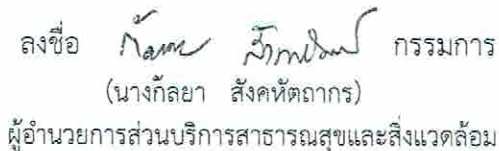 ลงชื่อ กรรมการ
(นางกัลยา สังคหัตถากร)
ผู้อำนวยการส่วนบริการสาธารณสุขและสิ่งแวดล้อม